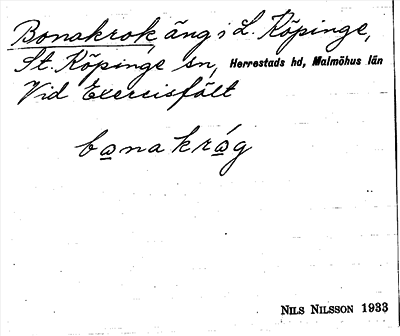 Bonakrok, äng i L. Köpinge,
St. Köpinge sn, Herrestads hd, Malmöhus län
Vid Exercisfält
bo̲nakrǻ̲g
NILS NILSSON 1933